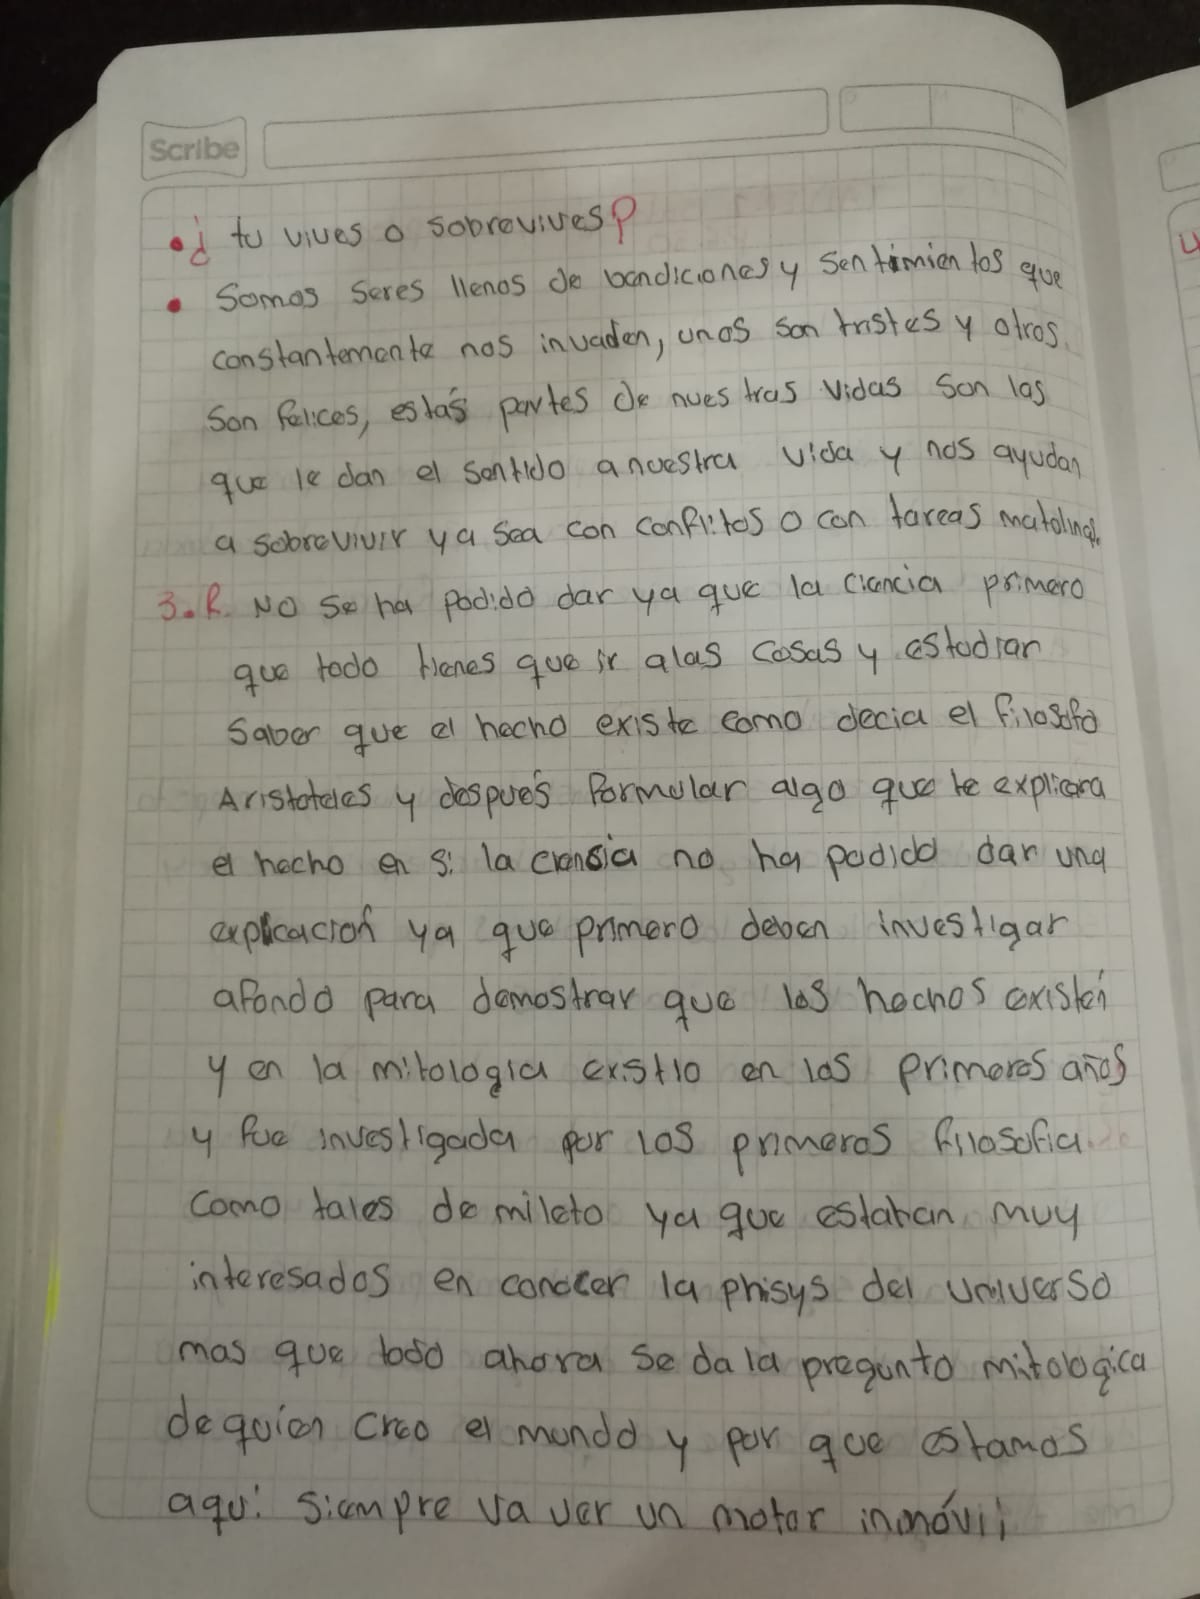 Scribe
• ¿ tu vives o sobrevives?
• Somos seres llenos de bendiciones y sentimientos que
constantemente nos invaden, unos son tristes y otros
son felices, estas partes de nuestras vidas son las
que le dan el sentido a nuestra vida y nos ayudan
a sobrevivir ya sea con conflitos o con tareas
3. R. No se ha podido dar ya que la ciencia primero
que todo tienes que ir alas cosas y estudiar
saber que el hecho existe como decia el filosofo
Aristoteles y después formular algo que te explicara
el hecho en si la ciensia no ha podido dar una
explicación ya que primero deben investigar
afondo para demostrar que los hechos existen
y en la mitologia existio en los primeros años
y fue investigada por los primeros filosofia
como tales de mileto ya que estaban muy
interesados en conocer la phisys del universo
mas que todo ahora se da la pregunto mitologica
de quien creo el mundo y por que estamos
aqui siempre va ver un motor inmóvil